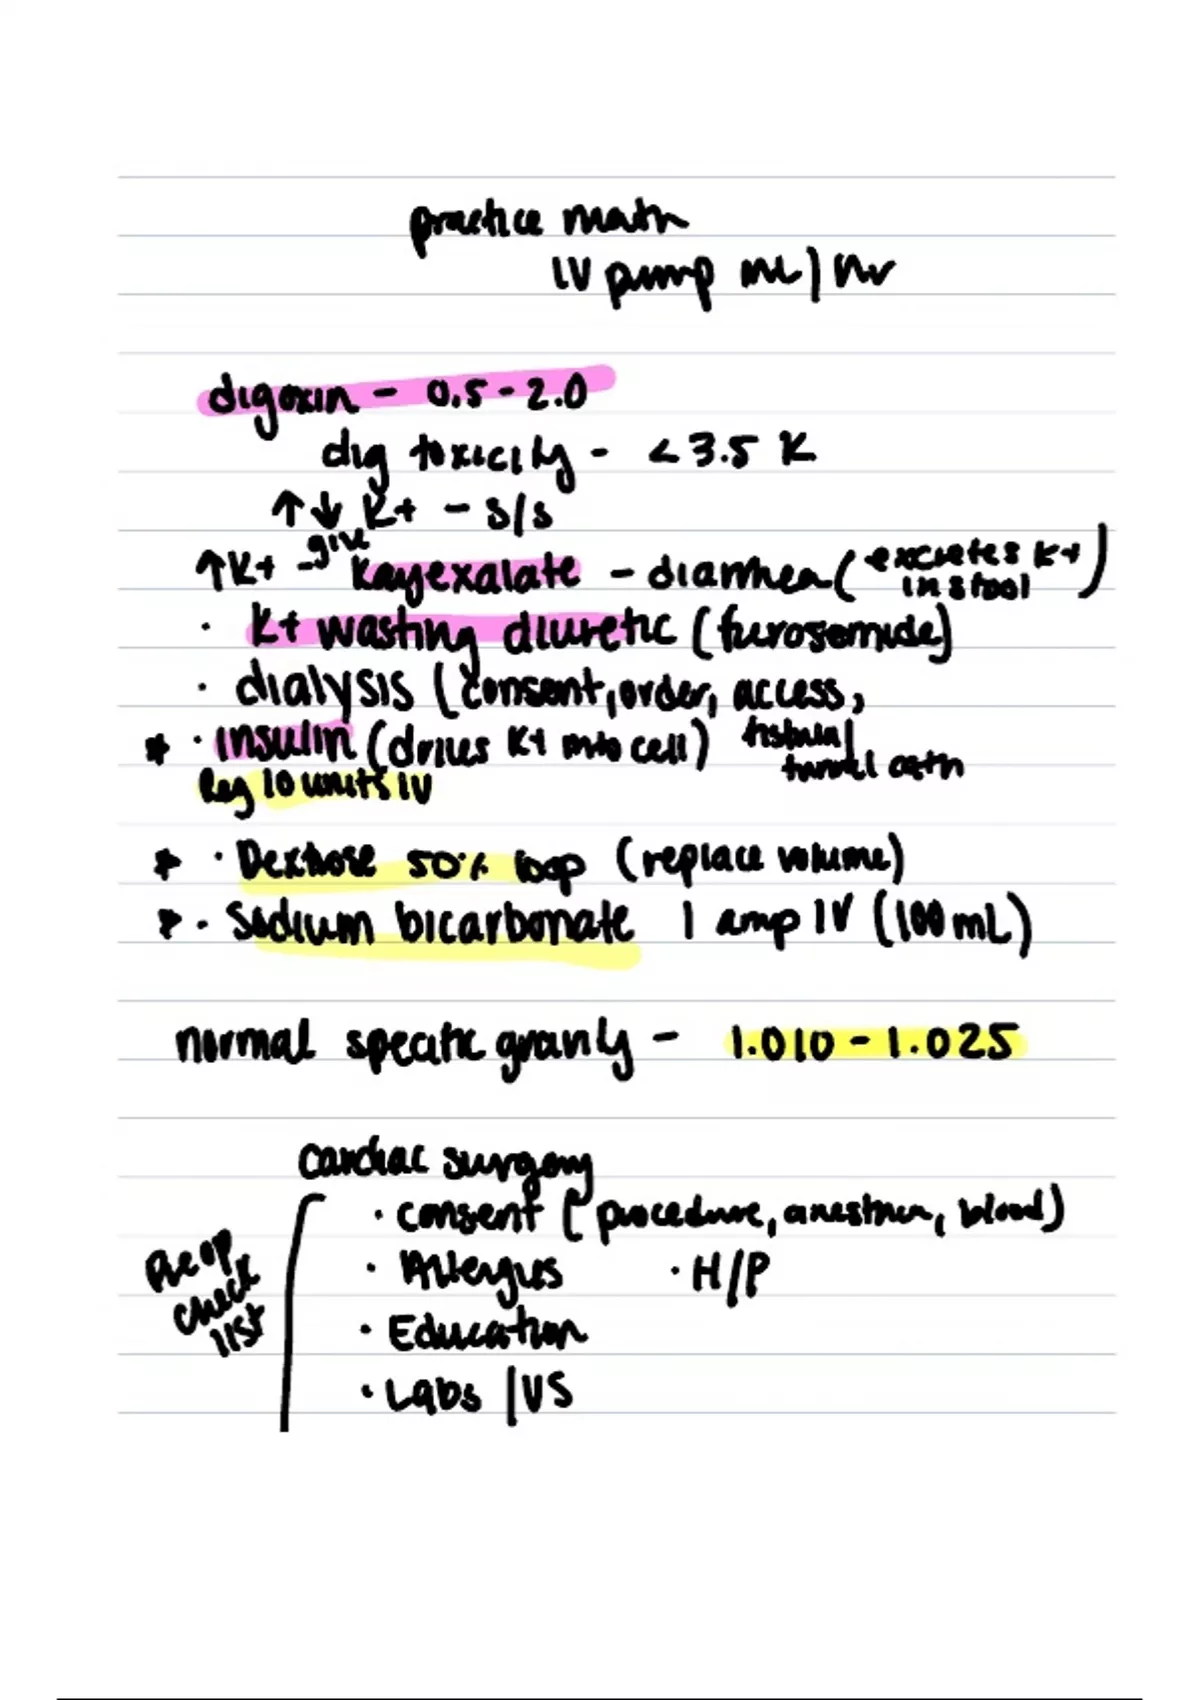 practice math
IV pump mL/hr
digoxin - 0.5-2.0
dig toxicity - <3.5 K
↑↓ K+ - s/s
↑K+ - give Kayexalate - diarrhea (excretes K+ in stool)
· K+ wasting diuretic (furosemide)
· dialysis (consent, order, access,
fistula/
tunnel cath
* · insulin (drives K+ into cell)
Reg 10 units IV
* · Dextrose 50% (replace volume)
* · Sodium bicarbonate 1 amp IV (100 mL)
normal specific gravity - 1.010 - 1.025
cardiac surgery
Pre op check list
· consent (procedure, anesthesia, blood)
· Allergies · H/P
· Education
· Labs / VS